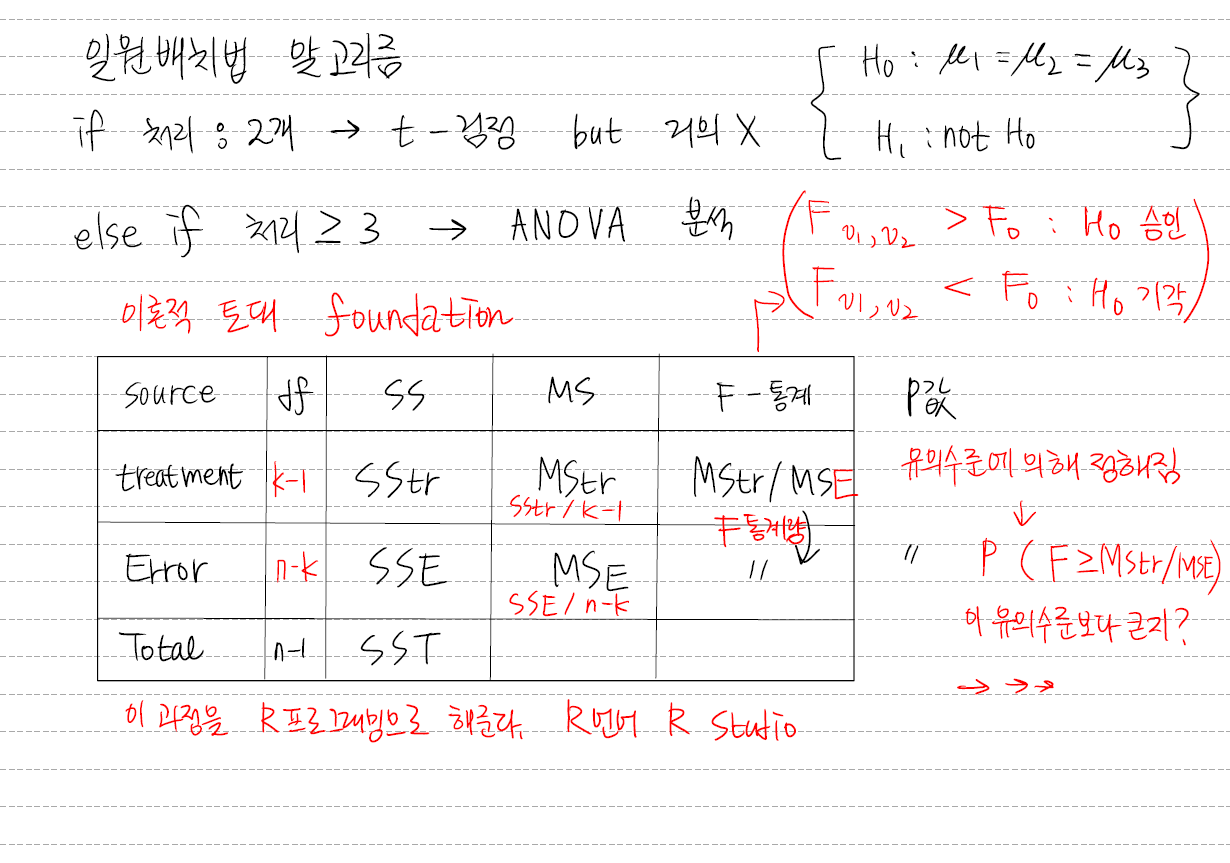 일원배치법 알고리즘
H₀ : μ₁ = μ₂ = μ₃
H₁ : not H₀
if 처리 : 2개 → t-검정 but 거의 X
else if 처리 ≥ 3 → ANOVA 분석
F υ₁,υ₂ > F₀ : H₀ 승인
F υ₁,υ₂ < F₀ : H₀ 기각
이론적 토대 foundation
source df SS MS F-통계 P값
treatment k-1 SStr MStr MStr/MSE
SStr/k-1
F통계량
유의수준에 의해 정해짐
↓
Error n-k SSE MSE 〃 〃 P(F≥MStr/MSE)
SSE/n-k
이 유의수준보다 큰지?
Total n-1 SST
→ → →
이 과정을 R프로그래밍으로 해준다. R언어 R Studio